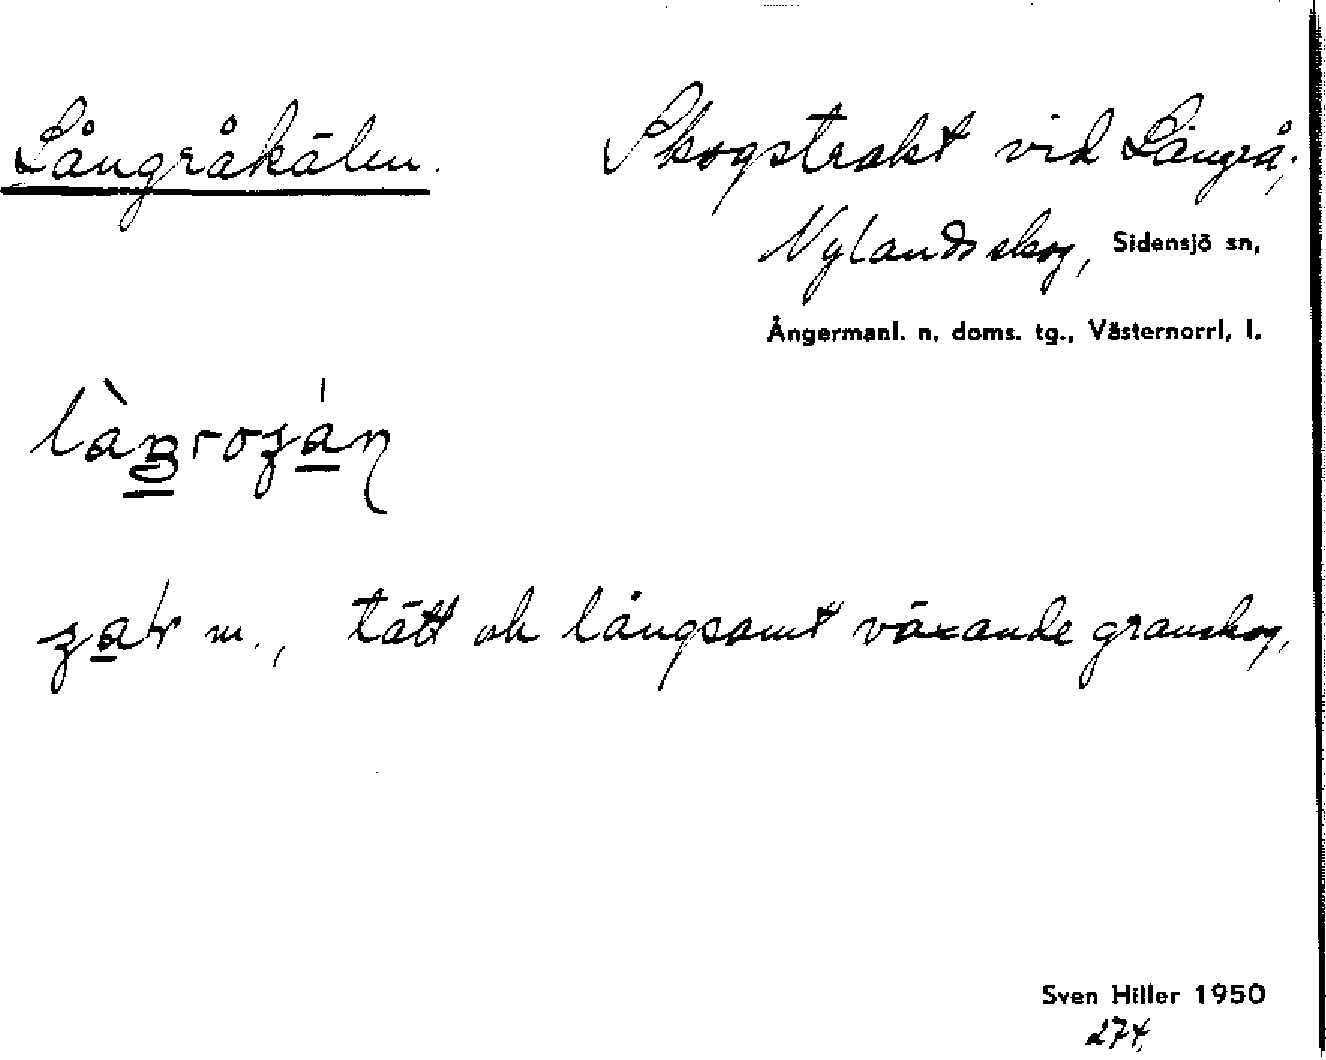 Långråkälen. Skogstrakt vid Långrå,
Nylands skog, Sidensjö sn,
Ångermanl. n. doms. tg., Västernorrl. l.
m., tätt ok långsamt växande granskog,
Sven Hiller 1950
274.